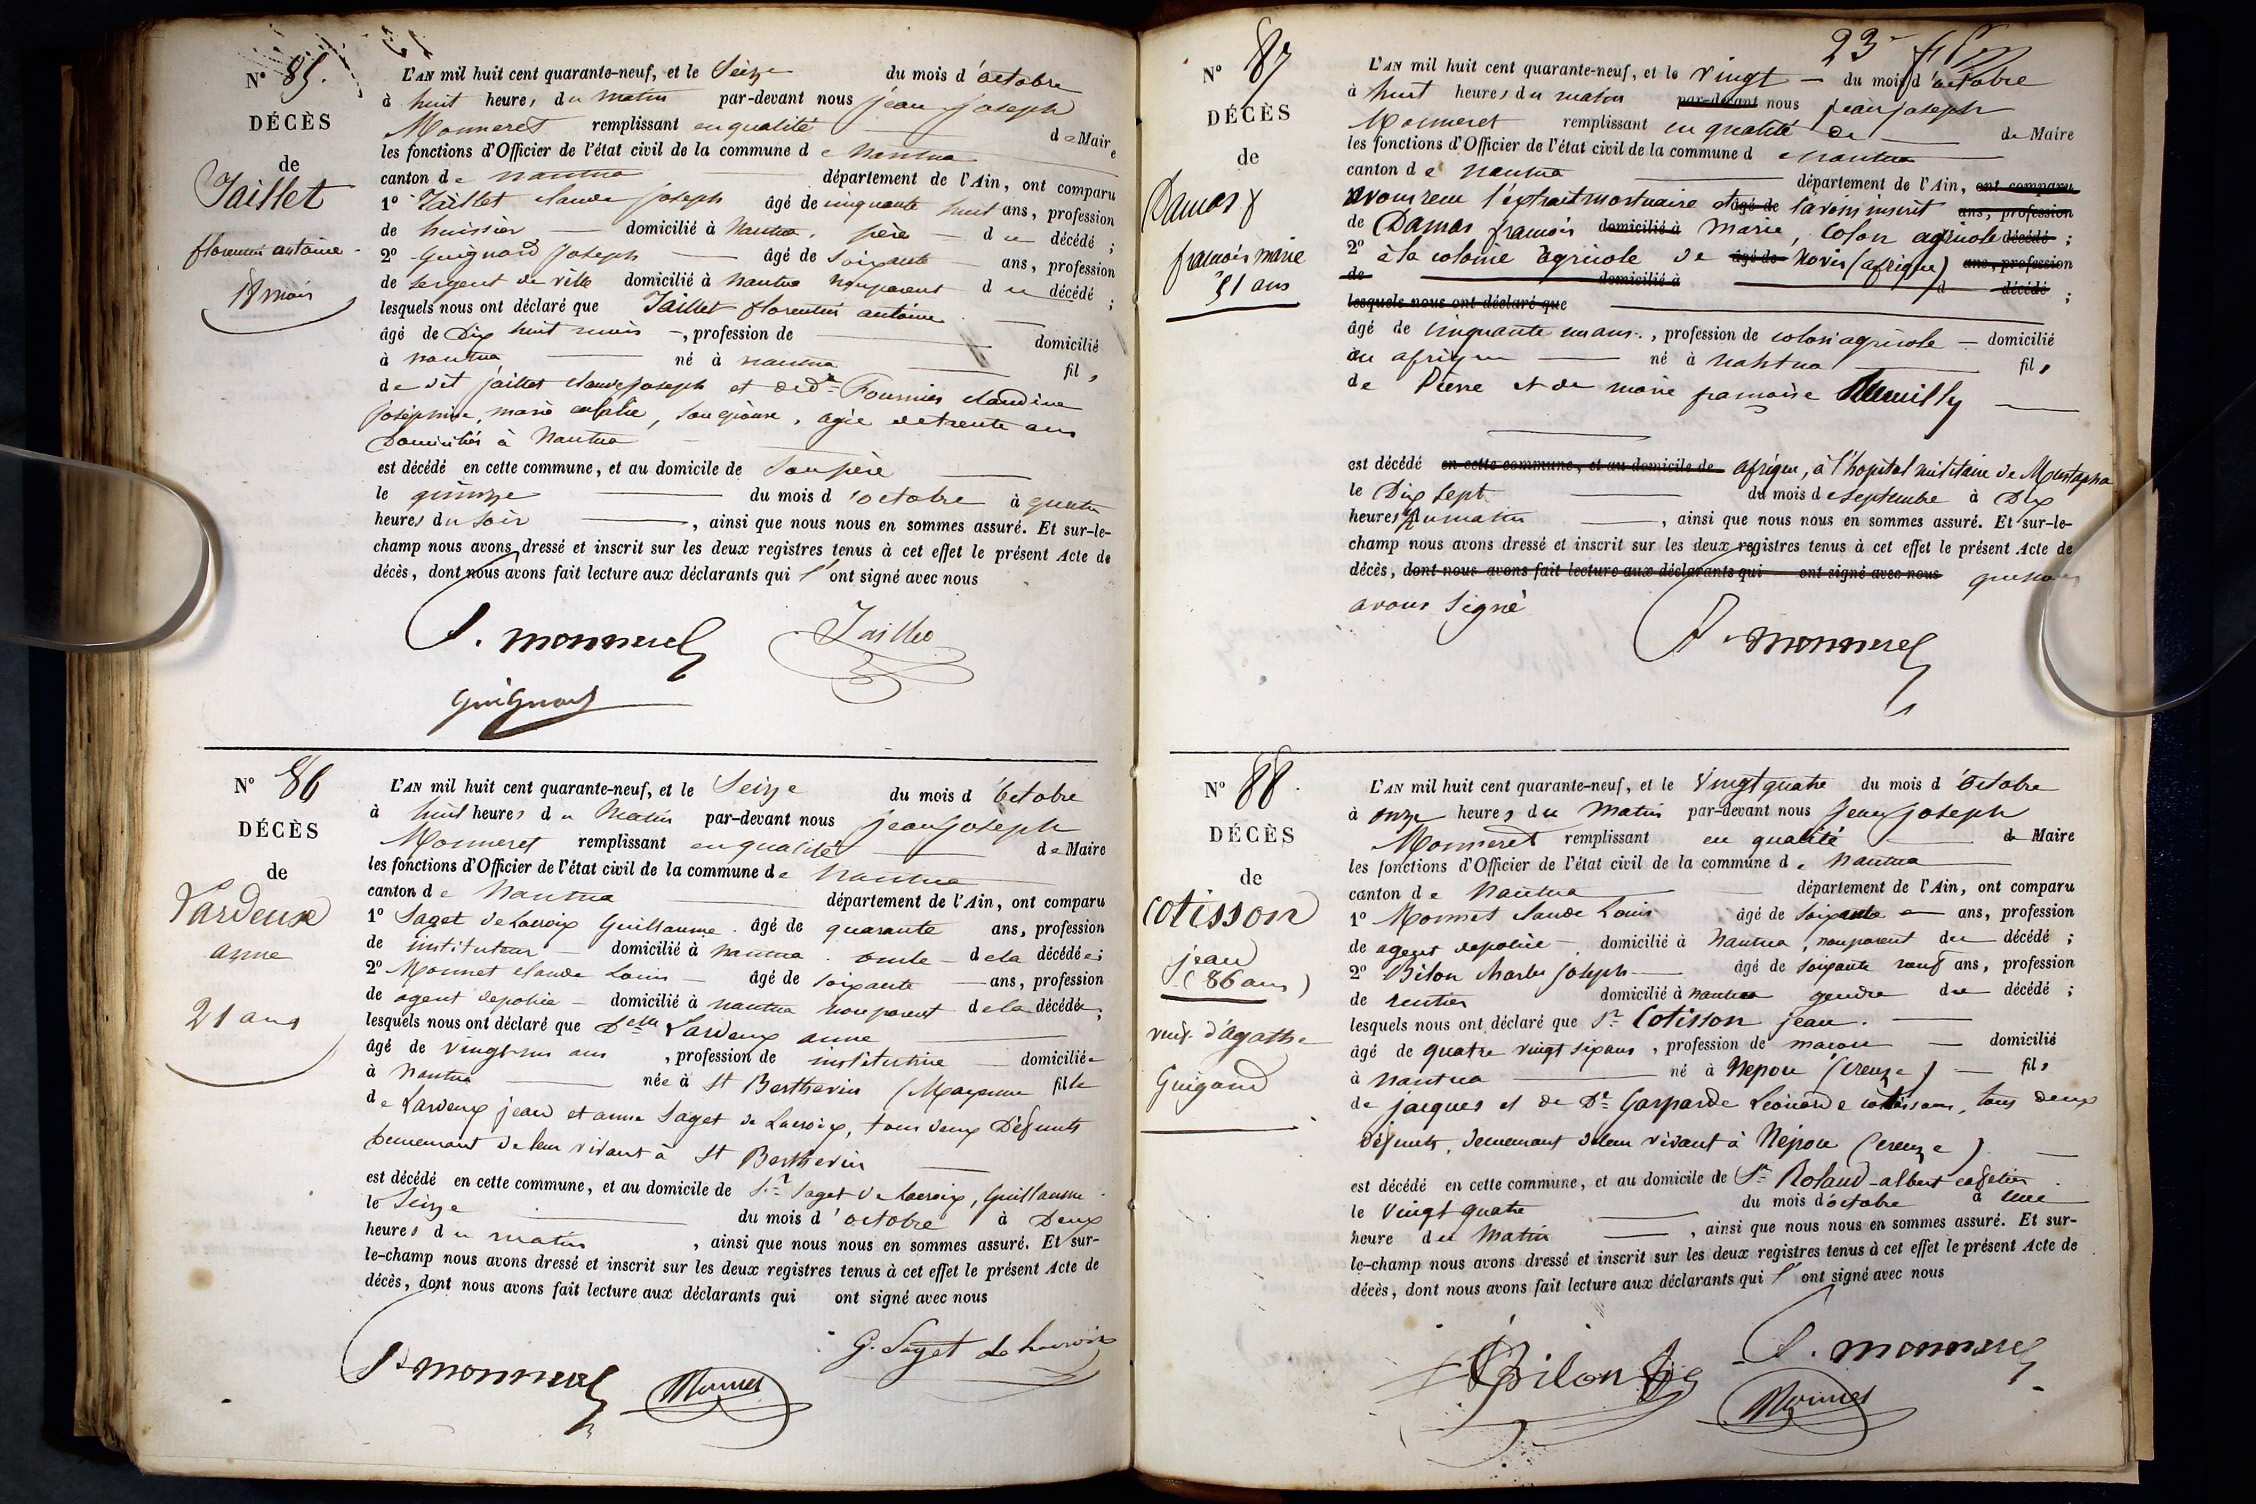 N° 85.
DÉCÈS
de
Jaillet
florentin antoine
18 mois
L'AN mil huit cent quarante-neuf, et le Seize du mois d'octobre
à huit heures du matin par-devant nous jean joseph
Monneret remplissant en qualité de Maire
les fonctions d'Officier de l'état civil de la commune de nantua
canton de nantua département de l'Ain, ont comparu
1° Jaillet claude joseph âgé de cinquante huit ans, profession
de huissier domicilié à Nantua, père du décédé ;
2° Guignard Joseph âgé de soixante ans, profession
de sergent de ville domicilié à nantua non parent du décédé ;
lesquels nous ont déclaré que Jaillet florentin antoine
âgé de Dix huit mois, profession de domicilié
à nantua né à nantua fils
de dit jaillet claude joseph et de de Fournier claudine
joséphine, marie eulalie, son épouse, agée de trente ans
Domiciliés à Nantua
est décédé en cette commune, et au domicile de son père
le quinze du mois d'octobre à quatre
heures du soir, ainsi que nous nous en sommes assuré. Et sur-le-
champ nous avons dressé et inscrit sur les deux registres tenus à cet effet le présent Acte de
décès, dont nous avons fait lecture aux déclarants qui l'ont signé avec nous
J. monneret
Jaillet
Guignard
N° 86
DÉCÈS
de
Lardeux
anne
21 ans
L'AN mil huit cent quarante-neuf, et le Seize du mois d'octobre
à huit heures du Matin par-devant nous jean joseph
Monneret remplissant en qualité de Maire
les fonctions d'Officier de l'état civil de la commune de Nantua
canton de Nantua département de l'Ain, ont comparu
1° Saget de Lacroix Guillaume. âgé de quarante ans, profession
de instituteur domicilié à nantua. oncle de la décédée ;
2° Monnet claude Louis âgé de soixante ans, profession
de agent de police domicilié à nantua non parent de la décédée ;
lesquels nous ont déclaré que Delle Lardeux anne
âgé de vingt-un ans, profession de institutrice domiciliée
à Nantua née à St Berthevin (Mayenne fille
de Lardeux jean et anne Saget de Lacroix, tous deux Défunts
Demeurant de leur vivant à St Berthevin
est décédé en cette commune, et au domicile de Sr Saget de Lacroix, Guillaume
le Seize du mois d'octobre à Deux
heures du matin, ainsi que nous nous en sommes assuré. Et sur-
le-champ nous avons dressé et inscrit sur les deux registres tenus à cet effet le présent Acte de
décès, dont nous avons fait lecture aux déclarants qui ont signé avec nous
G. Saget de Lacroix
J. monneret
Monnet
23
N° 87
DÉCÈS
de
Damas
francois marie
51 ans
L'AN mil huit cent quarante-neuf, et le vingt du mois d'octobre
à huit heures du matin par-devant nous jean joseph
Monneret remplissant en qualité de de Maire
les fonctions d'Officier de l'état civil de la commune de nantua
canton de nantua département de l'Ain, ont comparu
avons reçu l'extrait mortuaire et âgé de l'avons inscrit ans, profession
de Damas francois domicilié à Marie, Colon agricole décédé ;
2° à la colonie agricole de âgé de Novis (afrique) ans, profession
de domicilié à d décédé ;
lesquels nous ont déclaré que
âgé de cinquante un ans., profession de colon agricole domicilié
en afrique né à nantua fils
de Pierre et de marie françoise
est décédé en cette commune, et au domicile de afrique, à l'hopital militaire de Mustapha
le Dix sept du mois de septembre à Dix
heures du matin, ainsi que nous nous en sommes assuré. Et sur-le-
champ nous avons dressé et inscrit sur les deux registres tenus à cet effet le présent Acte de
décès, dont nous avons fait lecture aux déclarants qui ont signé avec nous que nous
avons signé
J. monneret
N° 88.
DÉCÈS
de
Cotisson
jean
(86 ans)
veuf d'agathe
Guigand
L'AN mil huit cent quarante-neuf, et le Vingt quatre du mois d'octobre
à onze heures du Matin par-devant nous jean joseph
Monneret remplissant en qualité de Maire
les fonctions d'Officier de l'état civil de la commune de nantua
canton de Nantua département de l'Ain, ont comparu
1° Monnet claude Louis âgé de soixante ans, profession
de agent de police domicilié à Nantua, non parent du décédé ;
2° Bilon charles joseph âgé de soixante neuf ans, profession
de rentier domicilié à nantua gendre du décédé ;
lesquels nous ont déclaré que Sr Cotisson jean.
âgé de quatre vingt six ans, profession de macon domicilié
à nantua né à Nepou (creuze) fils
de jacques et de De Gasparde Léonarde cotisson, tous deux
défunts, demeurant de leur vivant à Népou (creuze)
est décédé en cette commune, et au domicile de Sr Roland-albert cafetier
le vingt quatre du mois d'octobre à une
heure du Matin, ainsi que nous nous en sommes assuré. Et sur-
le-champ nous avons dressé et inscrit sur les deux registres tenus à cet effet le présent Acte de
décès, dont nous avons fait lecture aux déclarants qui l'ont signé avec nous
J. monneret
Bilon
Monnet